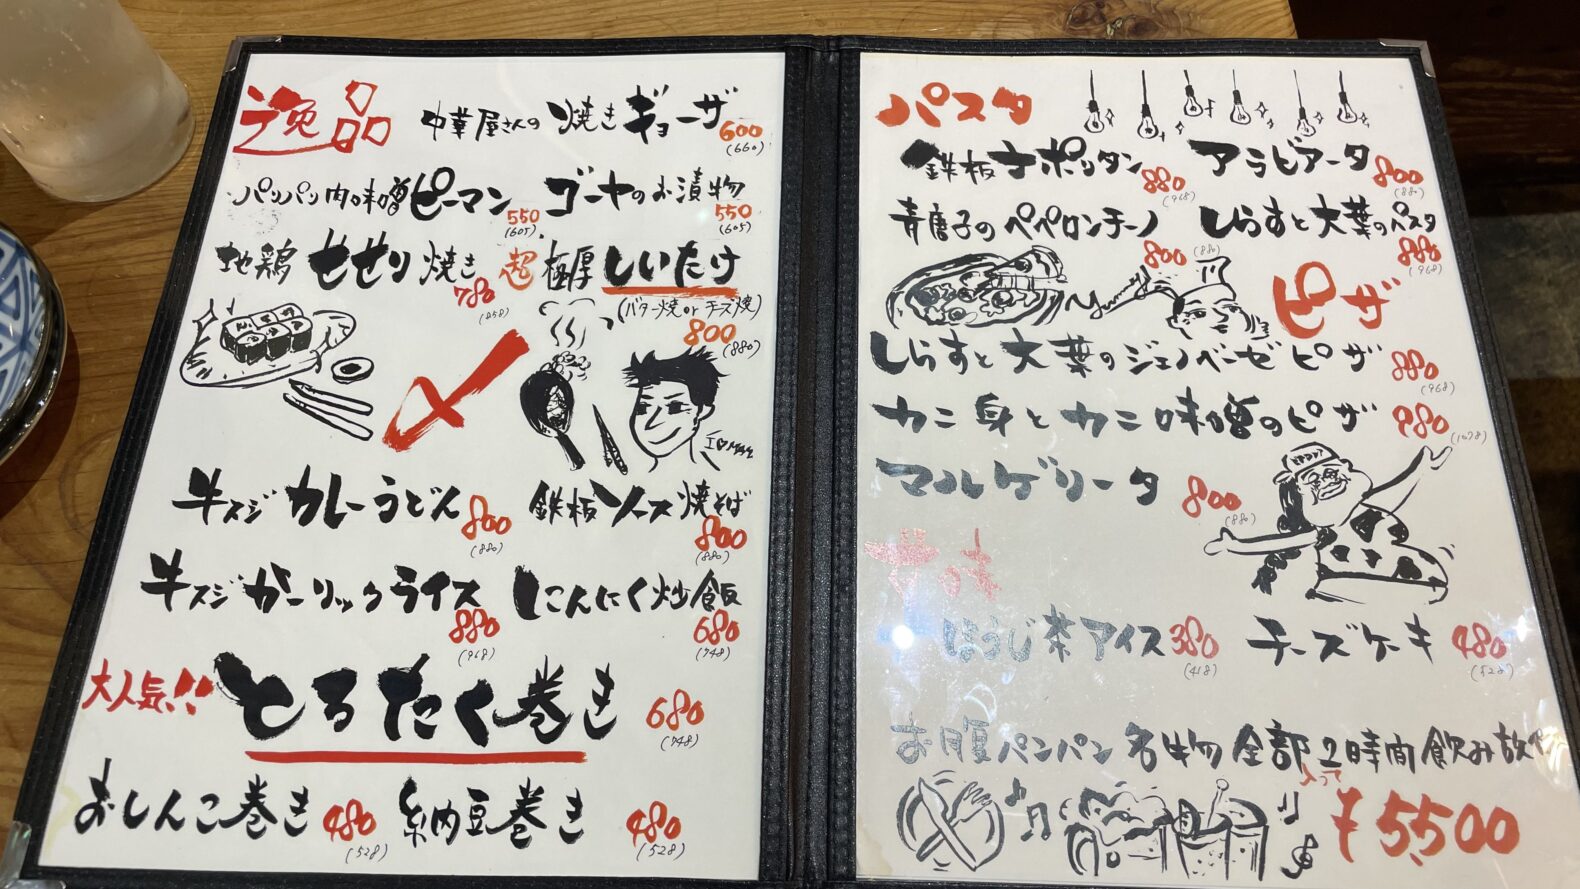 逸品
中華屋さんの 焼きギョーザ 600 (660)
パリパリ肉味噌ピーマン 550 (605)
ゴーヤのお漬物 550 (605)
地鶏 せせり焼き 780 (858)
超 極厚 しいたけ
(バター焼 or チーズ焼) 800 (880)
〆
牛スジ カレーうどん 800 (880)
鉄板ソース焼そば 800 (880)
牛スジ ガーリックライス 880 (968)
にんにく炒飯 680 (748)
大人気!! とろたく巻き 680 (748)
おしんこ巻き 480 (528)
納豆巻き 480 (528)
パスタ
鉄板ナポリタン 880 (968)
アラビアータ 800 (880)
青唐子のペペロンチーノ 800 (880)
しらすと大葉のパスタ 880 (968)
ピザ
しらすと大葉のジェノベーゼピザ 880 (968)
カニ身とカニ味噌のピザ 980 (1078)
マルゲリータ 800 (880)
甘味
ほうじ茶アイス 380 (418)
チーズケーキ 480 (528)
お腹パンパン名物全部 2時間飲み放
入って ¥5,500